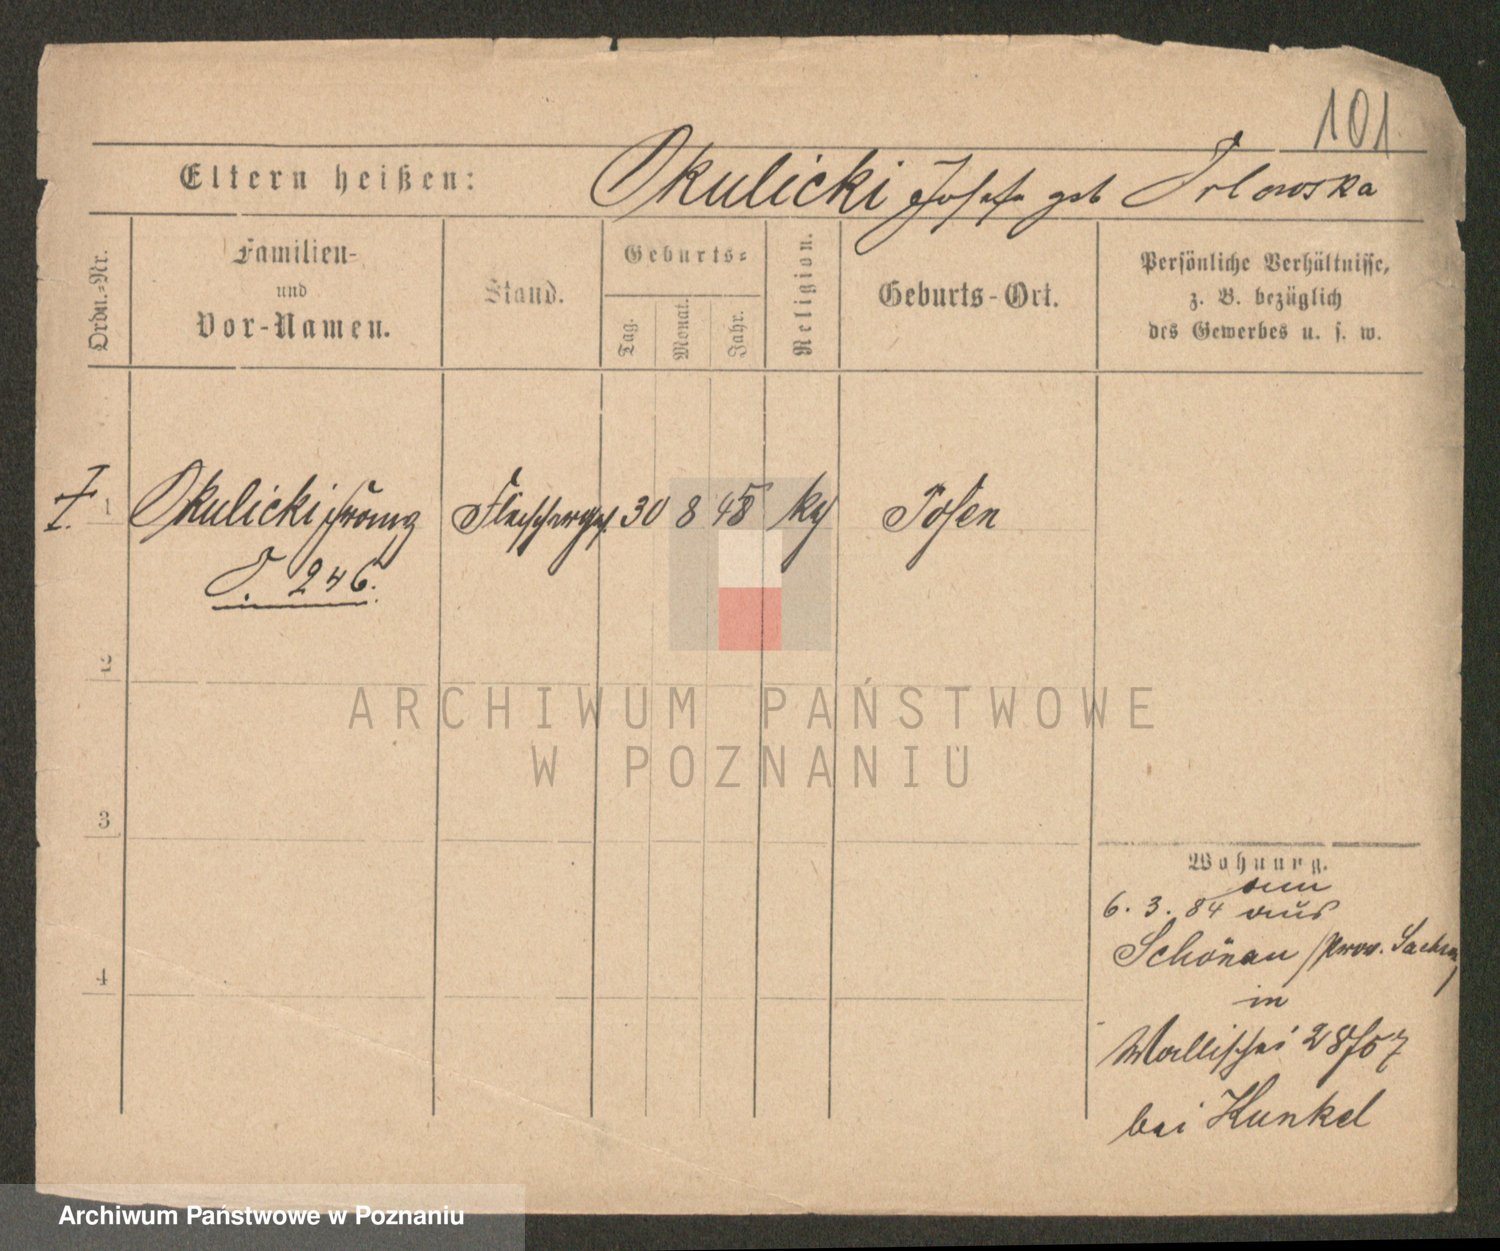 101
Eltern heißen: Okulicki Josefa geb Orlowska
Ordn.-Nr.
Familien-
und
Vor-Namen.
Stand.
Geburts-
Tag.
Monat.
Jahr.
Religion.
Geburts-Ort.
Persönliche Verhältnisse,
z. B. bezüglich
des Gewerbes u. s. w.
1 Okulicki Franz Fleischerges. 30 8 48 kg Posen
T. 246.
2
3
4
Wohnung.
6. 3. 84 aus
Schönau /Prov. Sachsen/
in
Wallischei 28/57
bei Kunkel
ARCHIWUM PAŃSTWOWE
W POZNANIU
Archiwum Państwowe w Poznaniu